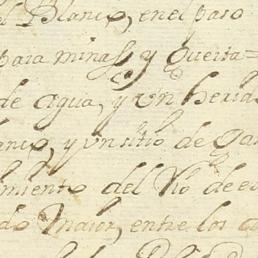 l Blanco, en el paso
para minas, y guerta=
de agua, y Vn herid
anco, y Vn sitio de gan
imiento del Rio de es
do maior, entre los